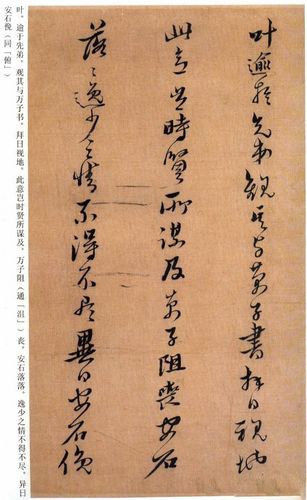 叶逾於先弟觀其與萬子書拜日視地
此意豈時賢所謀及萬子阻喪安石
落〻逸少之情不得不尽異日安石俛
叶。逾于先弟，观其与万子书，拜日视地，此意岂时贤所谋及，万子阻（通「沮」）丧。安石落落，逸少之情不得不尽，异日
安石俛（同「俯」）